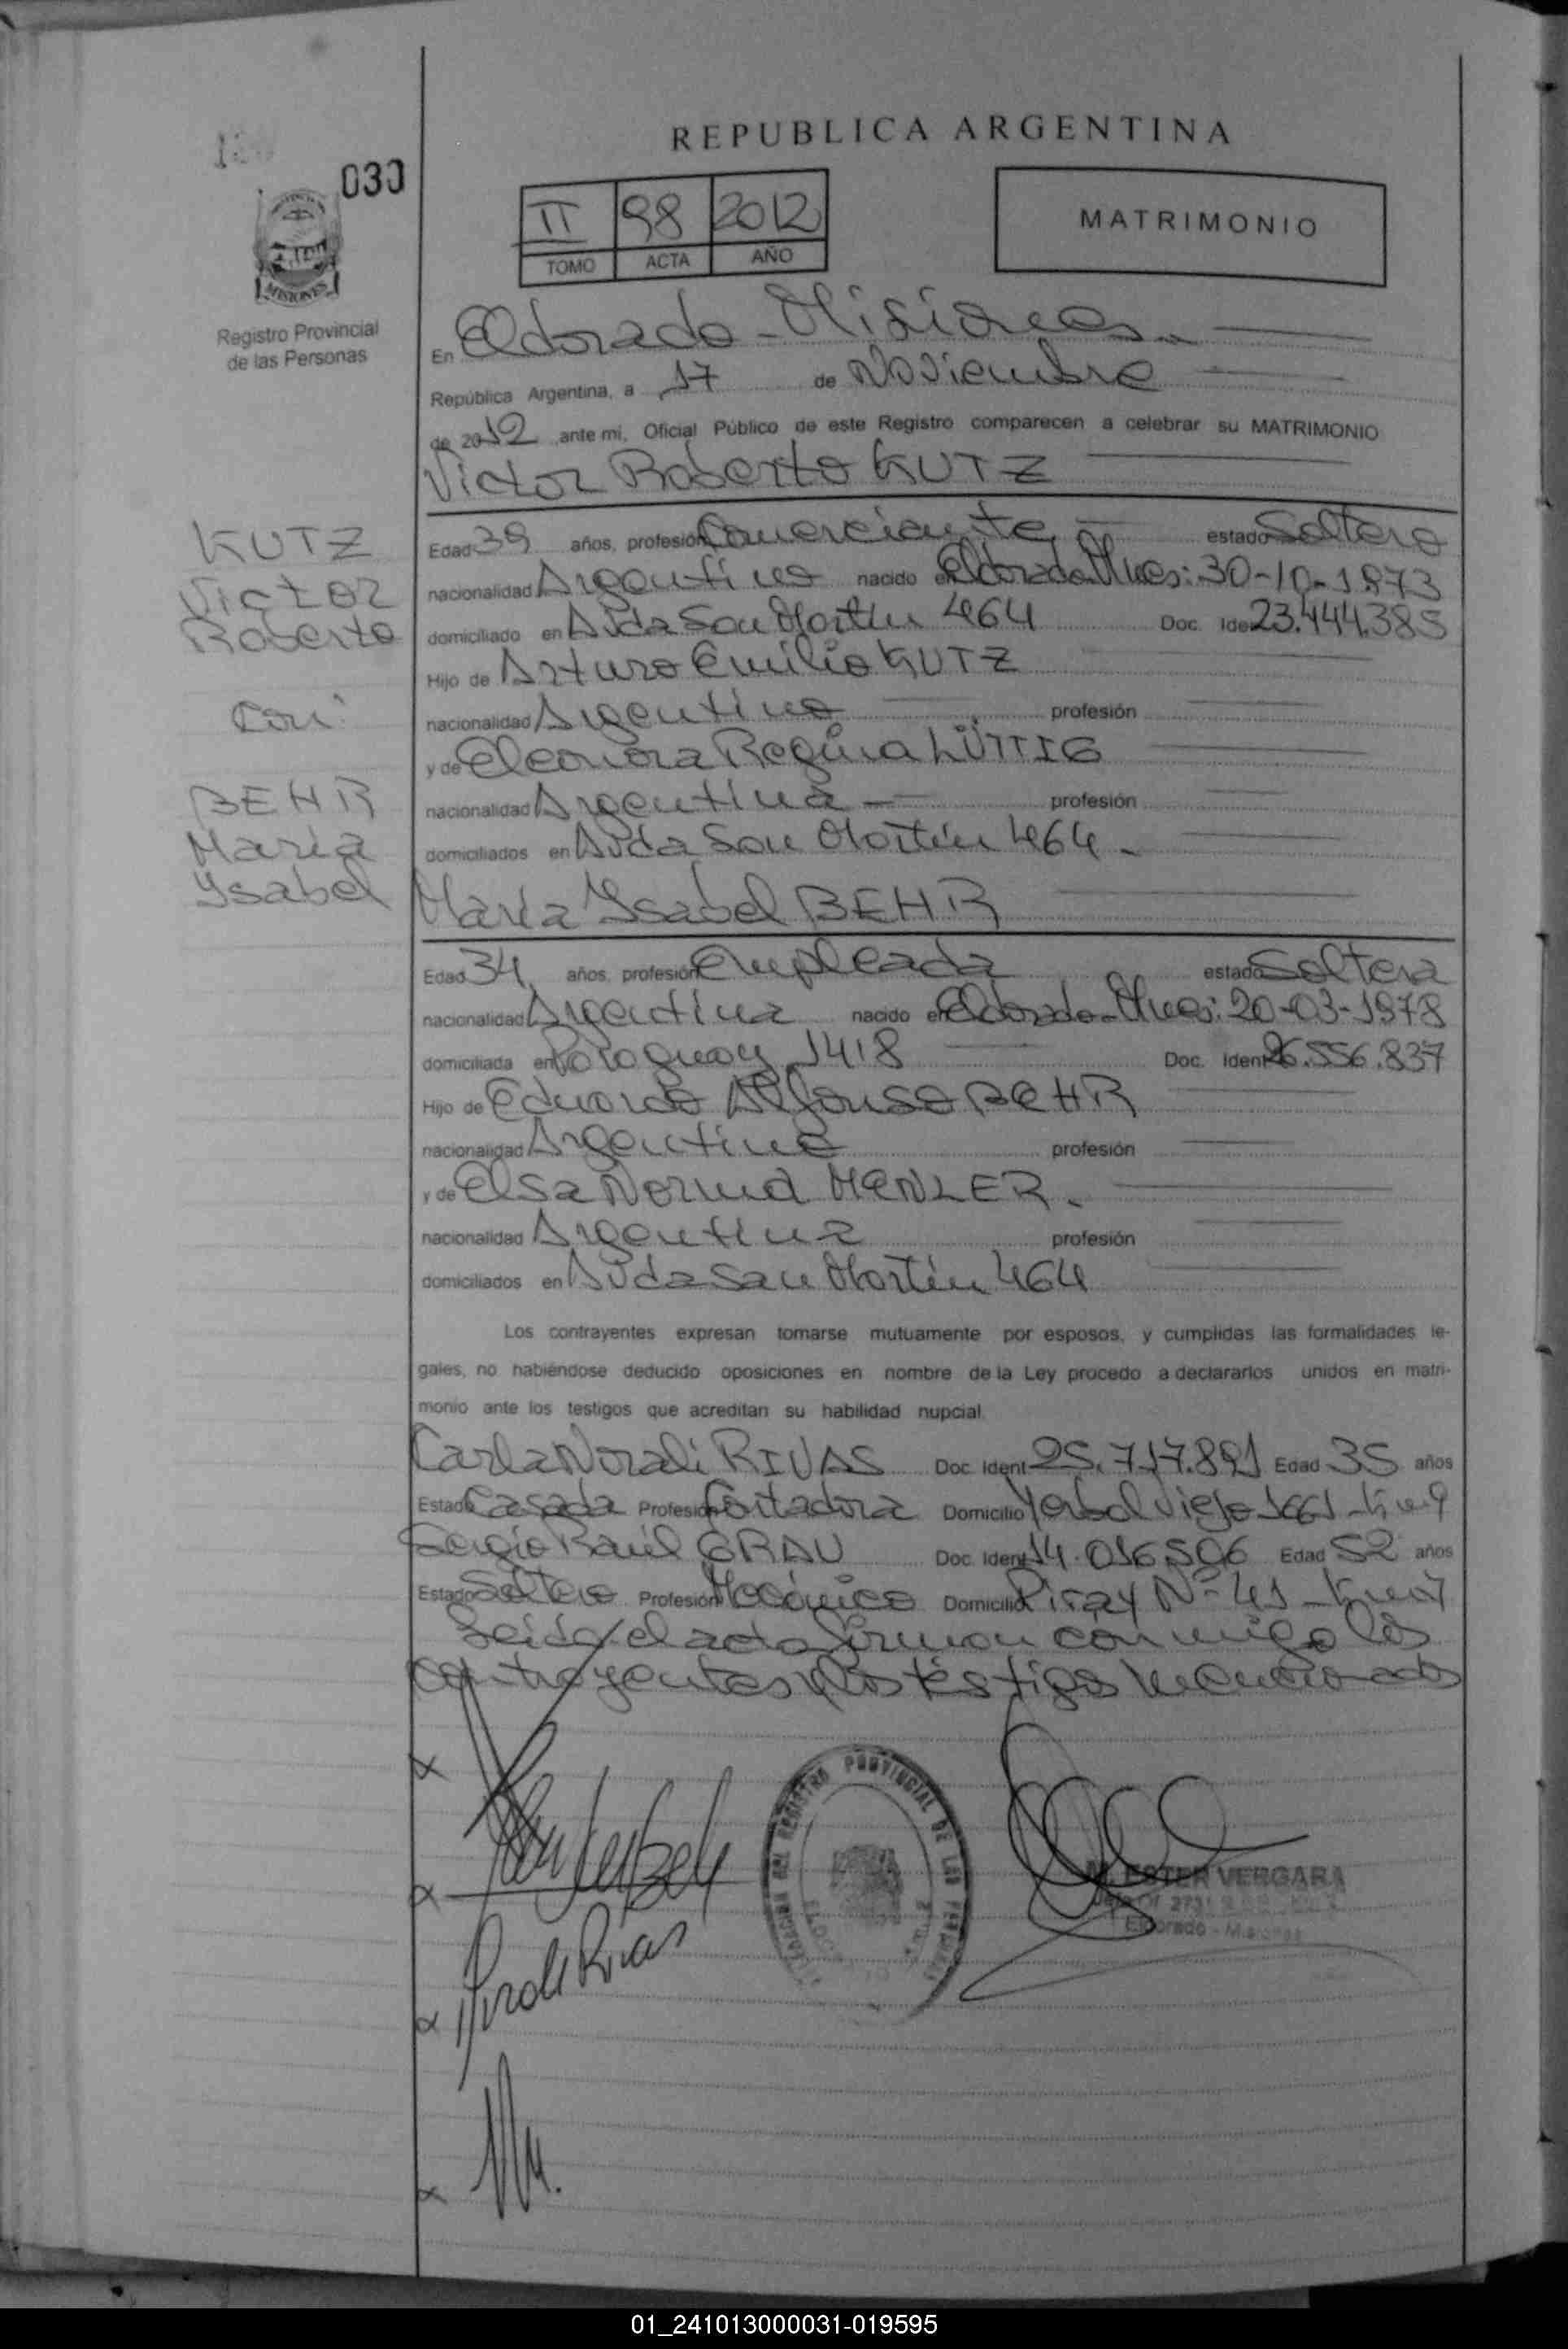 REPUBLICA ARGENTINA
030
II 98 2012
TOMO ACTA AÑO
MATRIMONIO
MISIONES
Registro Provincial
de las Personas
En Eldorado - Misiones
República Argentina, a 17 de Noviembre
de 2012 ante mi, Oficial Público de este Registro comparecen a celebrar su MATRIMONIO
Victor Roberto KUTZ
KUTZ
Victor
Roberto
Con:
BEHR
María
Ysabel
Edad 39 años, profesión Comerciante estado Soltero
nacionalidad Argentino nacido en Eldorado Mnes: 30-10-1973
domiciliado en Avda San Martín 464 Doc. Ident 23.444.385
Hijo de Arturo Emilio KUTZ
nacionalidad Argentino profesión
y de Eleonora Regina LÜTTIG
nacionalidad Argentina profesión
domiciliados en Avda San Martín 464
María Ysabel BEHR
Edad 34 años, profesión Empleada estado Soltera
nacionalidad Argentina nacido en Eldorado Mnes: 20-03-1978
domiciliada en Paraguay 1418 Doc. Ident 26.556.837
Hijo de Eduardo Alfonso BEHR
nacionalidad Argentino profesión
y de Elsa Norma MENLER
nacionalidad Argentina profesión
domiciliados en Avda San Martín 464
Los contrayentes expresan tomarse mutuamente por esposos, y cumplidas las formalidades le-
gales, no habiéndose deducido oposiciones en nombre de la Ley procedo a declararlos unidos en matri-
monio ante los testigos que acreditan su habilidad nupcial.
Carla Norali RIVAS Doc. Ident 25.717.891 Edad 35 años
Estado Casada Profesión Contadora Domicilio Yerbal Viejo 1661 - Km 9
Sergio Raúl GRAU Doc. Ident 14.016.506 Edad 52 años
Estado Soltero Profesión Mecánico Domicilio Piray Nº 41 - Km
Leida el acta firman conmigo los
contrayentes y los testigos mencionados
REGISTRO PROVINCIAL DE LAS PERSONAS
M. ESTER VERGARA
Eldorado - Misiones
01_241013000031-019595